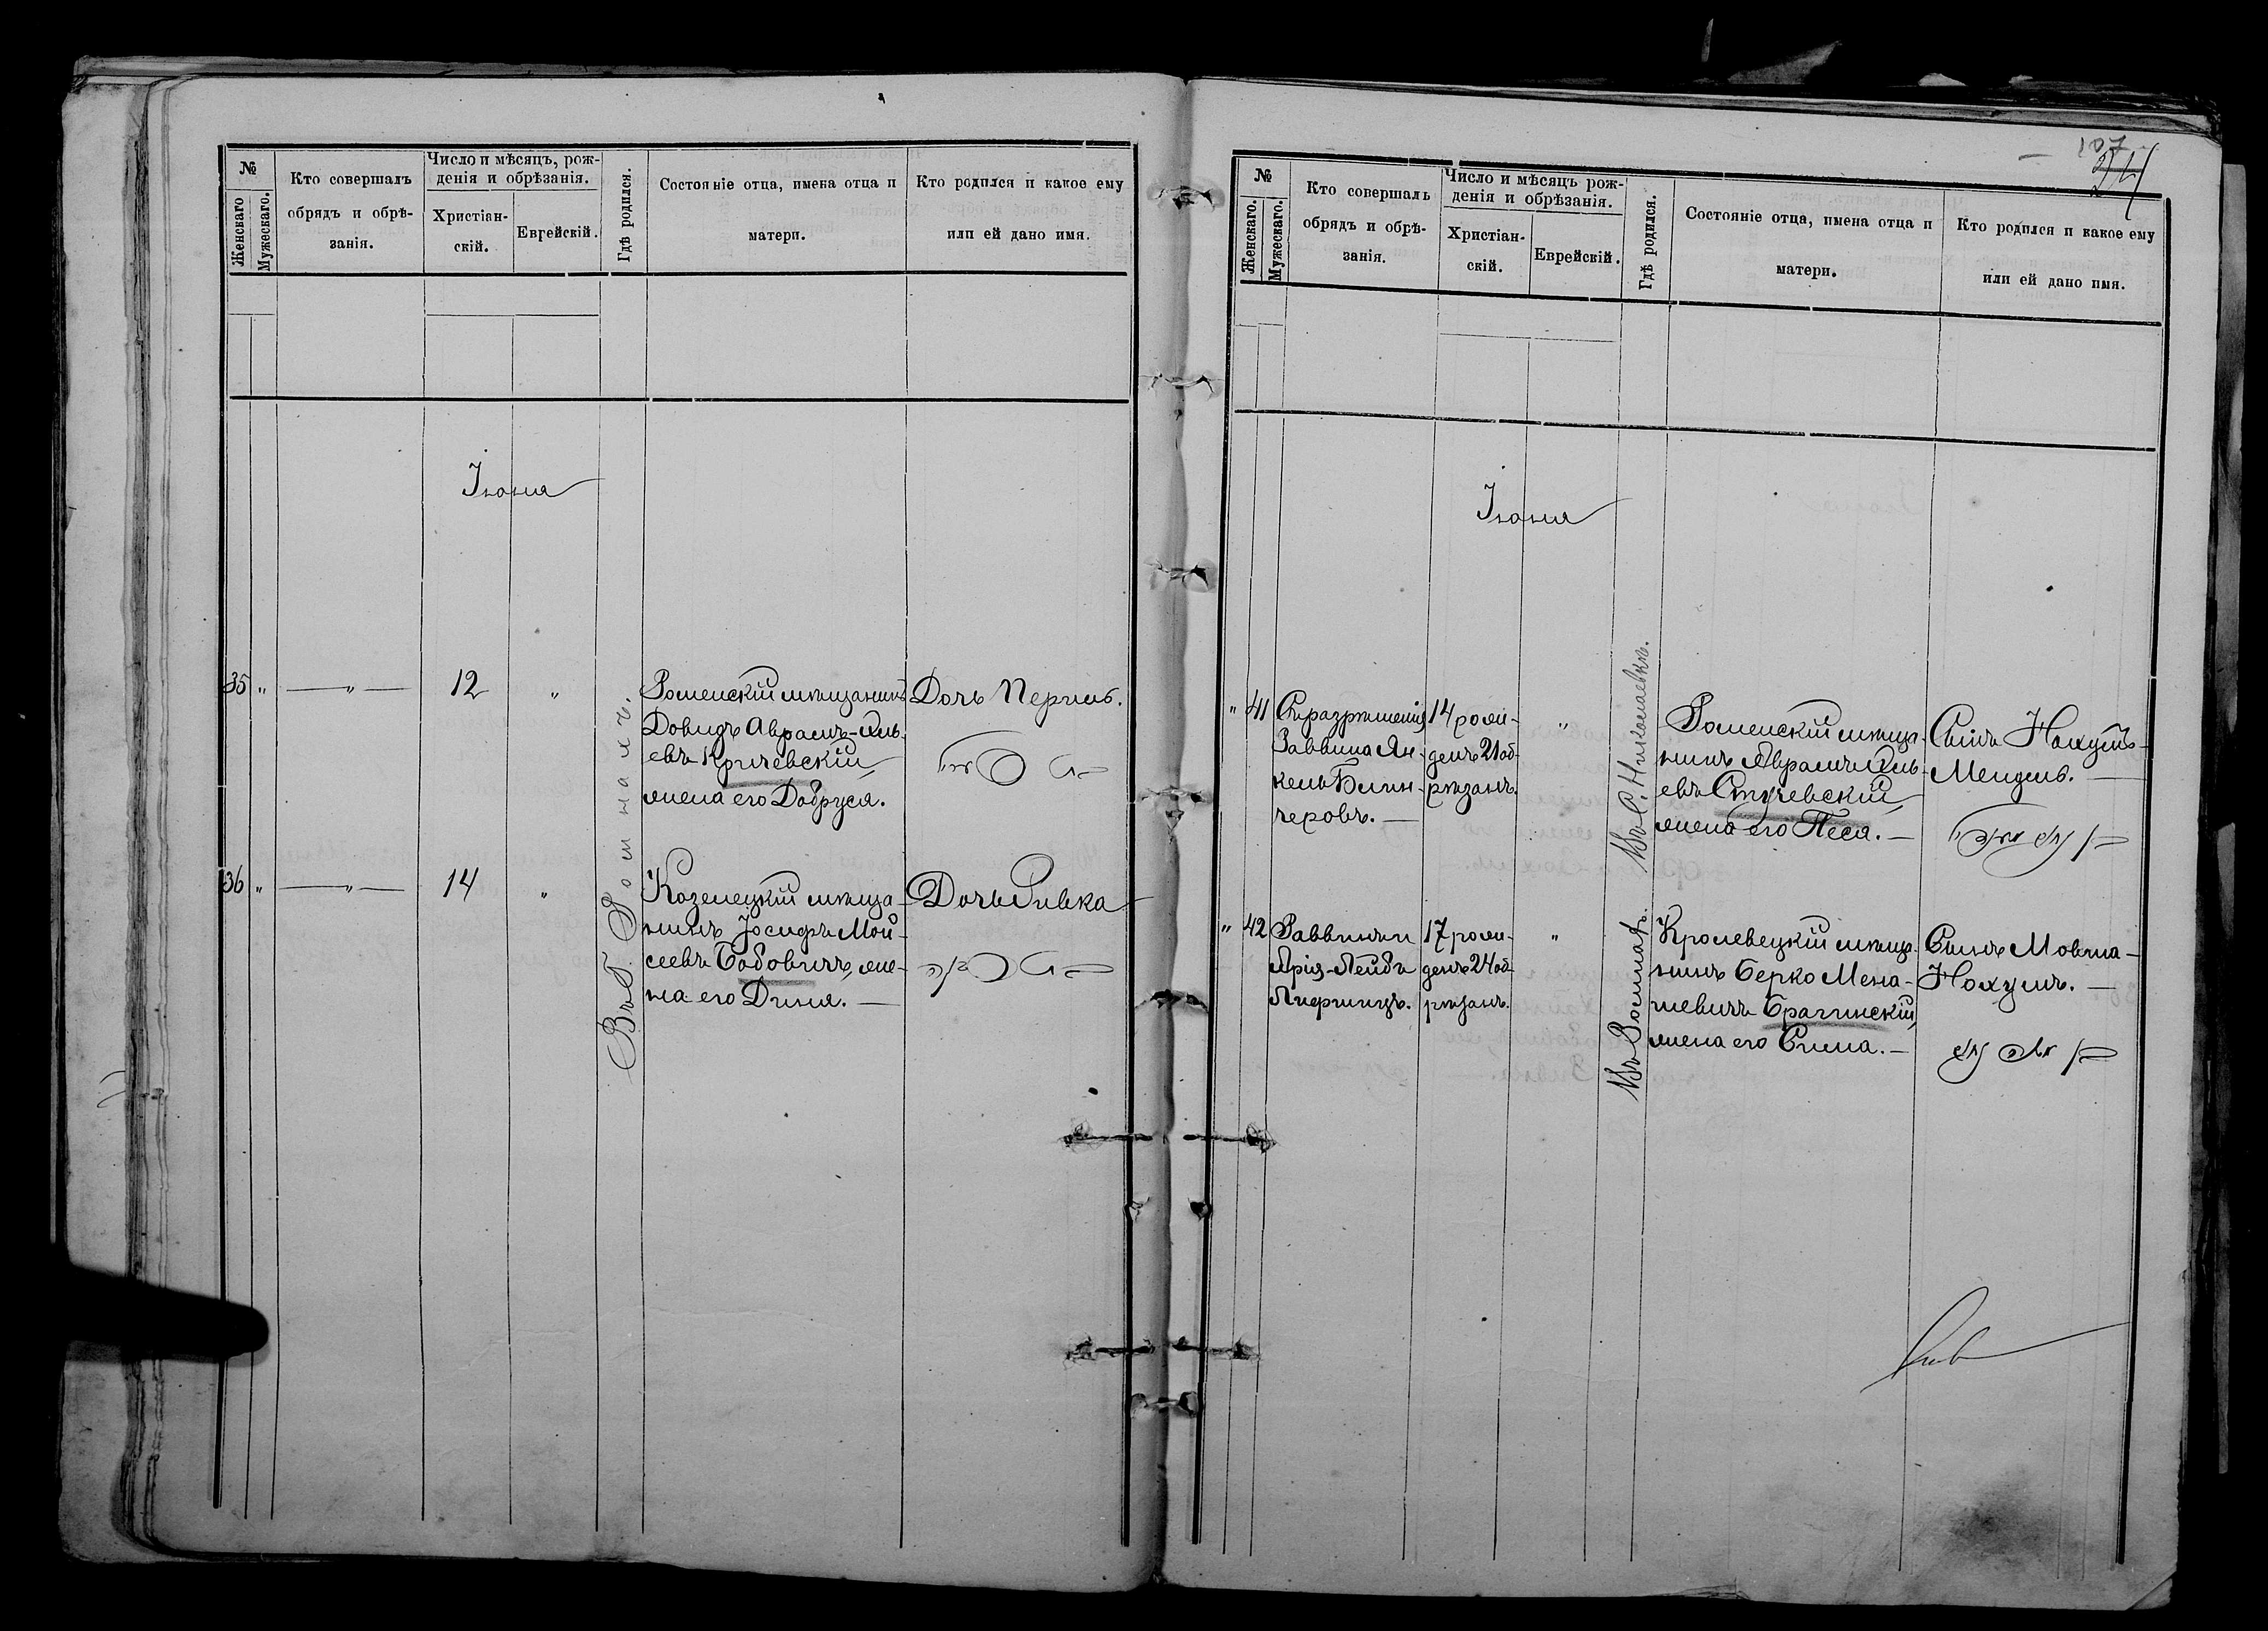 №
Женскаго
Мужескаго.
Кто совершалъ
обрядъ и обрѣ-
занія.
Число и мѣсяцъ, рож-
денія и обрѣзанія.
Христіан-
скій.
Еврейскій.
Гдѣ родился.
Состояніе отца, имена отца и
матери.
Кто родился и какое ему
или ей дано имя.
Іюня
35 " — " — 12 "
Роменскій мѣщанинъ
Довидъ Аврамъ-Хиль-
евъ Кричевскій,
жена его Добруся.
Дочь Перль.
36 " — " — 14 "
Козелецкій мѣща-
нинъ Іосифъ Мой-
сеевъ Бобовичъ, же-
на его Дина. —
Дочь Ривка
Въ Г. Ромнахъ.
107
№
Женскаго.
Мужескаго.
Кто совершалъ
обрядъ и обрѣ-
занія.
Число и мѣсяцъ рож-
денія и обрѣзанія.
Христіан-
скій.
Еврейскій.
Гдѣ родился.
Состояніе отца, имена отца и
матери.
Кто родился и какое ему
или ей дано имя.
Іюня
" 41
Съ разрѣшенія
Раввина Ян-
кель
14 рож-
денъ 21 об-
рѣзанъ.
"
Въ С. Николаевкѣ.
Роменскій мѣща-
нинъ Аврамъ Хиль-
евъ
жена его Песя. —
Сынъ Нохумъ-
Мендель. —
" 42
Раввинъ и
Арія-Лейбъ
Лифшицъ.
17 рож-
денъ 24 об-
рѣзанъ.
"
Въ Ромнахъ.
Кролевецкій мѣща-
нинъ Берко Мена-
шевичъ Брагинскій,
жена его Сима. —
Сынъ Мовша-
Нохумъ. —